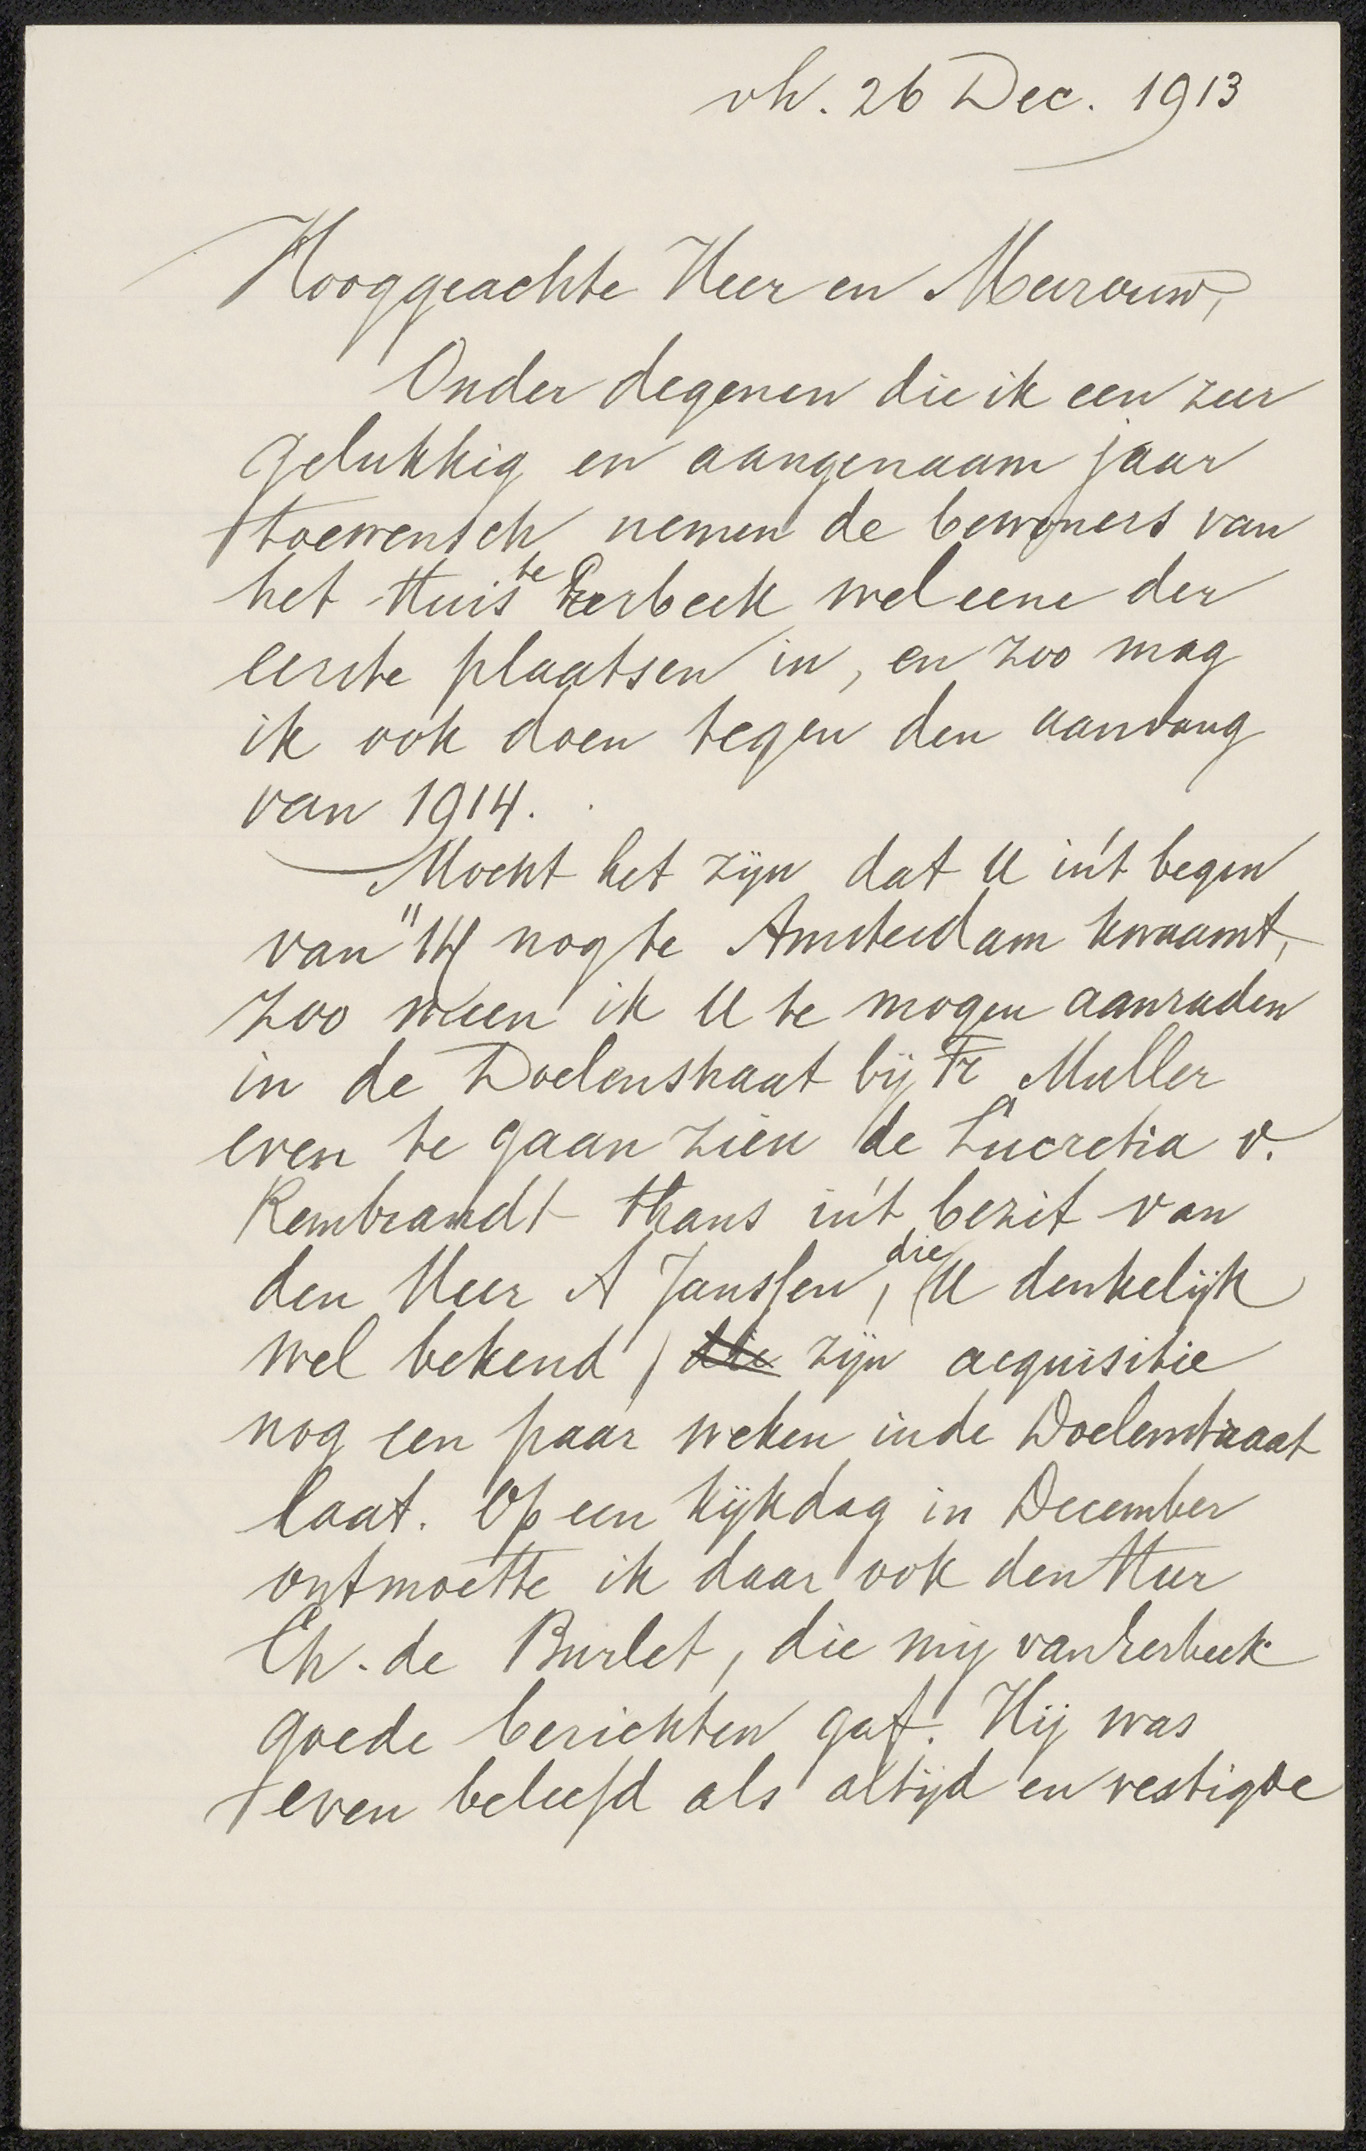 vh. 26 Dec. 1913
Hooggeachte Heer en Mevrouw,
Onder degenen die ik een zeer
gelukkig en aangenaam jaar
toewensch nemen de bewoners van
het Huis te Eerbeek wel eene der
eerste plaatsen in, en zoo mag
ik ook doen tegen den aanvang
van 1914.
Mocht het zijn dat U in't begin
van "14 nog te Amsterdam kwaamt,
zoo meen ik U te mogen aanraden
in de Doelenstraat bij Fr Muller
even te gaan zien de Lucretia v.
Rembrandt thans in't bezit van
den Heer A Janssen, die (U denkelijk
wel bekend) die zijn acquisitie
nog een paar weken in de Doelenstraat
laat. Op een kijkdag in December
ontmoette ik daar ook den Heer
Ch. de Burlet, die mij van Eerbeek
goede berichten gaf. Hij was
even beleefd als altijd en vestigde